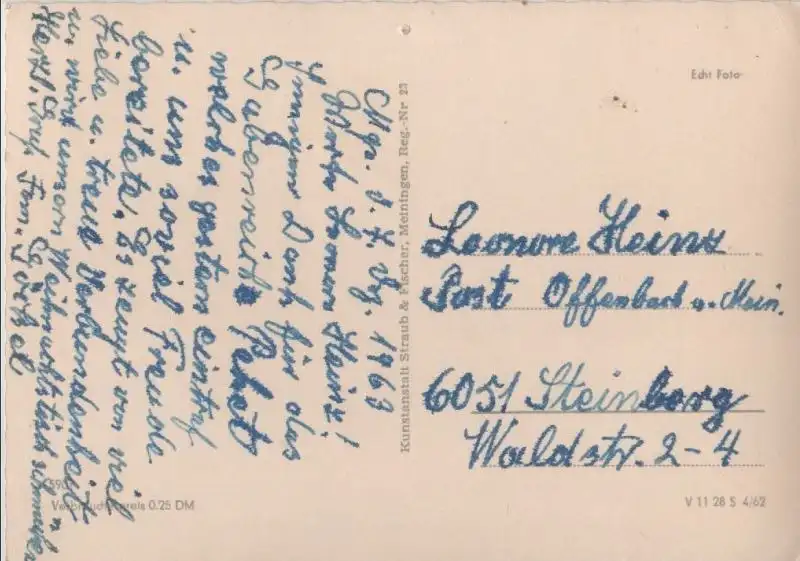 d. 7. Dez. 1963
Werte Heinz!
Inniger Dank für das
Paket
welches gestern eintraf
u. uns soviel Freude
bereitete. Es zeugt von viel
Liebe u. treue Verbundenheit
u. wird unsern Weihnachtstisch schmücken
Herzl. Fam.
Kunstanstalt Straub & Fischer, Meiningen, Reg.-Nr 23
Echt Foto
Leonore Heinz
Post Offenbach a. Mein.
6051 Steinberg
Waldstr. 2-4
590
Verbraucherpreis 0.25 DM
V 11 28 S 4/62